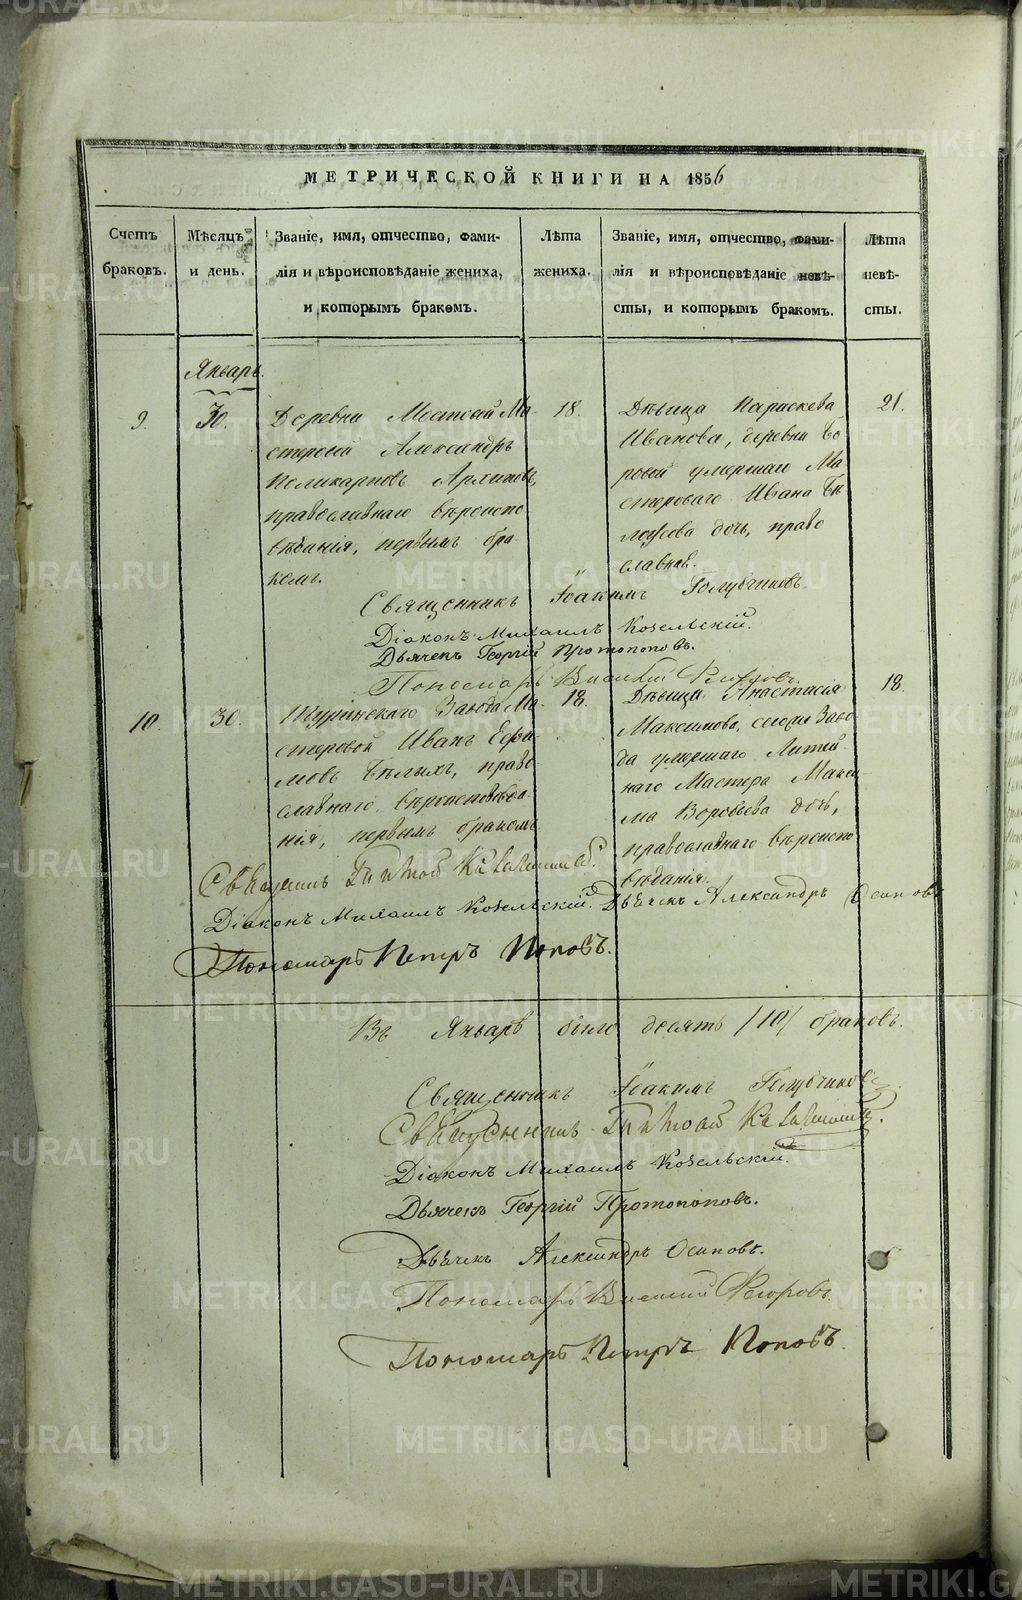 МЕТРИЧЕСКОЙ КНИГИ НА 1856
Счетъ браковъ.
Мѣсяцъ и день.
Званіе, имя, отчество, фами-
лія и вѣроисповѣданіе жениха,
и которымъ бракомъ.
Лѣта жениха.
Званіе, имя, отчество, фами-
лія и вѣроисповѣданіе невѣ-
сты, и которымъ бракомъ.
Лѣта невѣ-
сты.
Январь.
9.
30.
Деревни Ма-
стеровой Александръ
Поликарповъ Архиповъ,
православнаго вѣроиспо-
вѣданія, первымъ бра-
комъ.
18.
Дѣвица Параскева
Иванова, деревни Бо
ровой умершаго Ма
стероваго Ивана Бѣ
лоусова дочь, право
славная.
21.
Священникъ Іоакимъ Голубчиковъ
Діаконъ Михаилъ Козельскій.
Дьячекъ Георгій Протопоповъ.
Пономарь Василій
10.
30.
Туринскаго Завода Ма-
стеровой Иванъ Ефи-
мовъ Бѣлыхъ, право
славнаго вѣроисповѣда-
нія, первымъ бракомъ
18.
Дѣвица Анастасія
Максимова, Заво
да умершаго Литей
наго Мастера Макси-
ма Воробьева дочь,
православнаго вѣроиспо
вѣданія.
18.
Діаконъ Михаилъ Козельскій. Дьячекъ Александръ Осиповъ
Пономарь Петръ Поповъ.
Въ Январѣ было десять /10/ браковъ.
Священникъ Іоакимъ Голубчиковъ
Діаконъ Михаилъ Козельскій.
Дьячекъ Георгій Протопоповъ.
Дьячекъ Александръ Осиповъ.
Пономарь Василій
Пономарь Петръ Поповъ.
METRIKI.GASO-URAL.RU